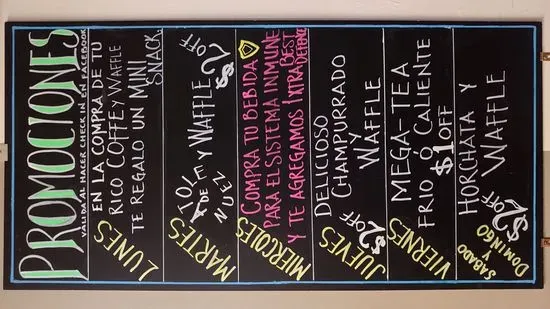 PROMOCIONES
VALIDA AL HACER CHECK IN EN FACEBOOK
LUNES
EN LA COMPRA DE TU
RICO COFFE Y WAFFLE
TE REGALO UN MINI
SNACK.
MARTES
ATOL
DE
NUEZ
Y WAFFLE
$2 OFF
MIERCOLES
COMPRA TU BEBIDA
PARA EL SISTEMA INMUNE
Y TE AGREGAMOS INTRA BEST
DEFENCE
JUEVES
DELICIOSO
CHAMPURRADO
Y
WAFFLE
$2 OFF
VIERNES
MEGA-TEA
FRIO Ó CALIENTE
$1 OFF
SABADO
Y
DOMINGO
HORCHATA Y
WAFFLE
$2 OFF